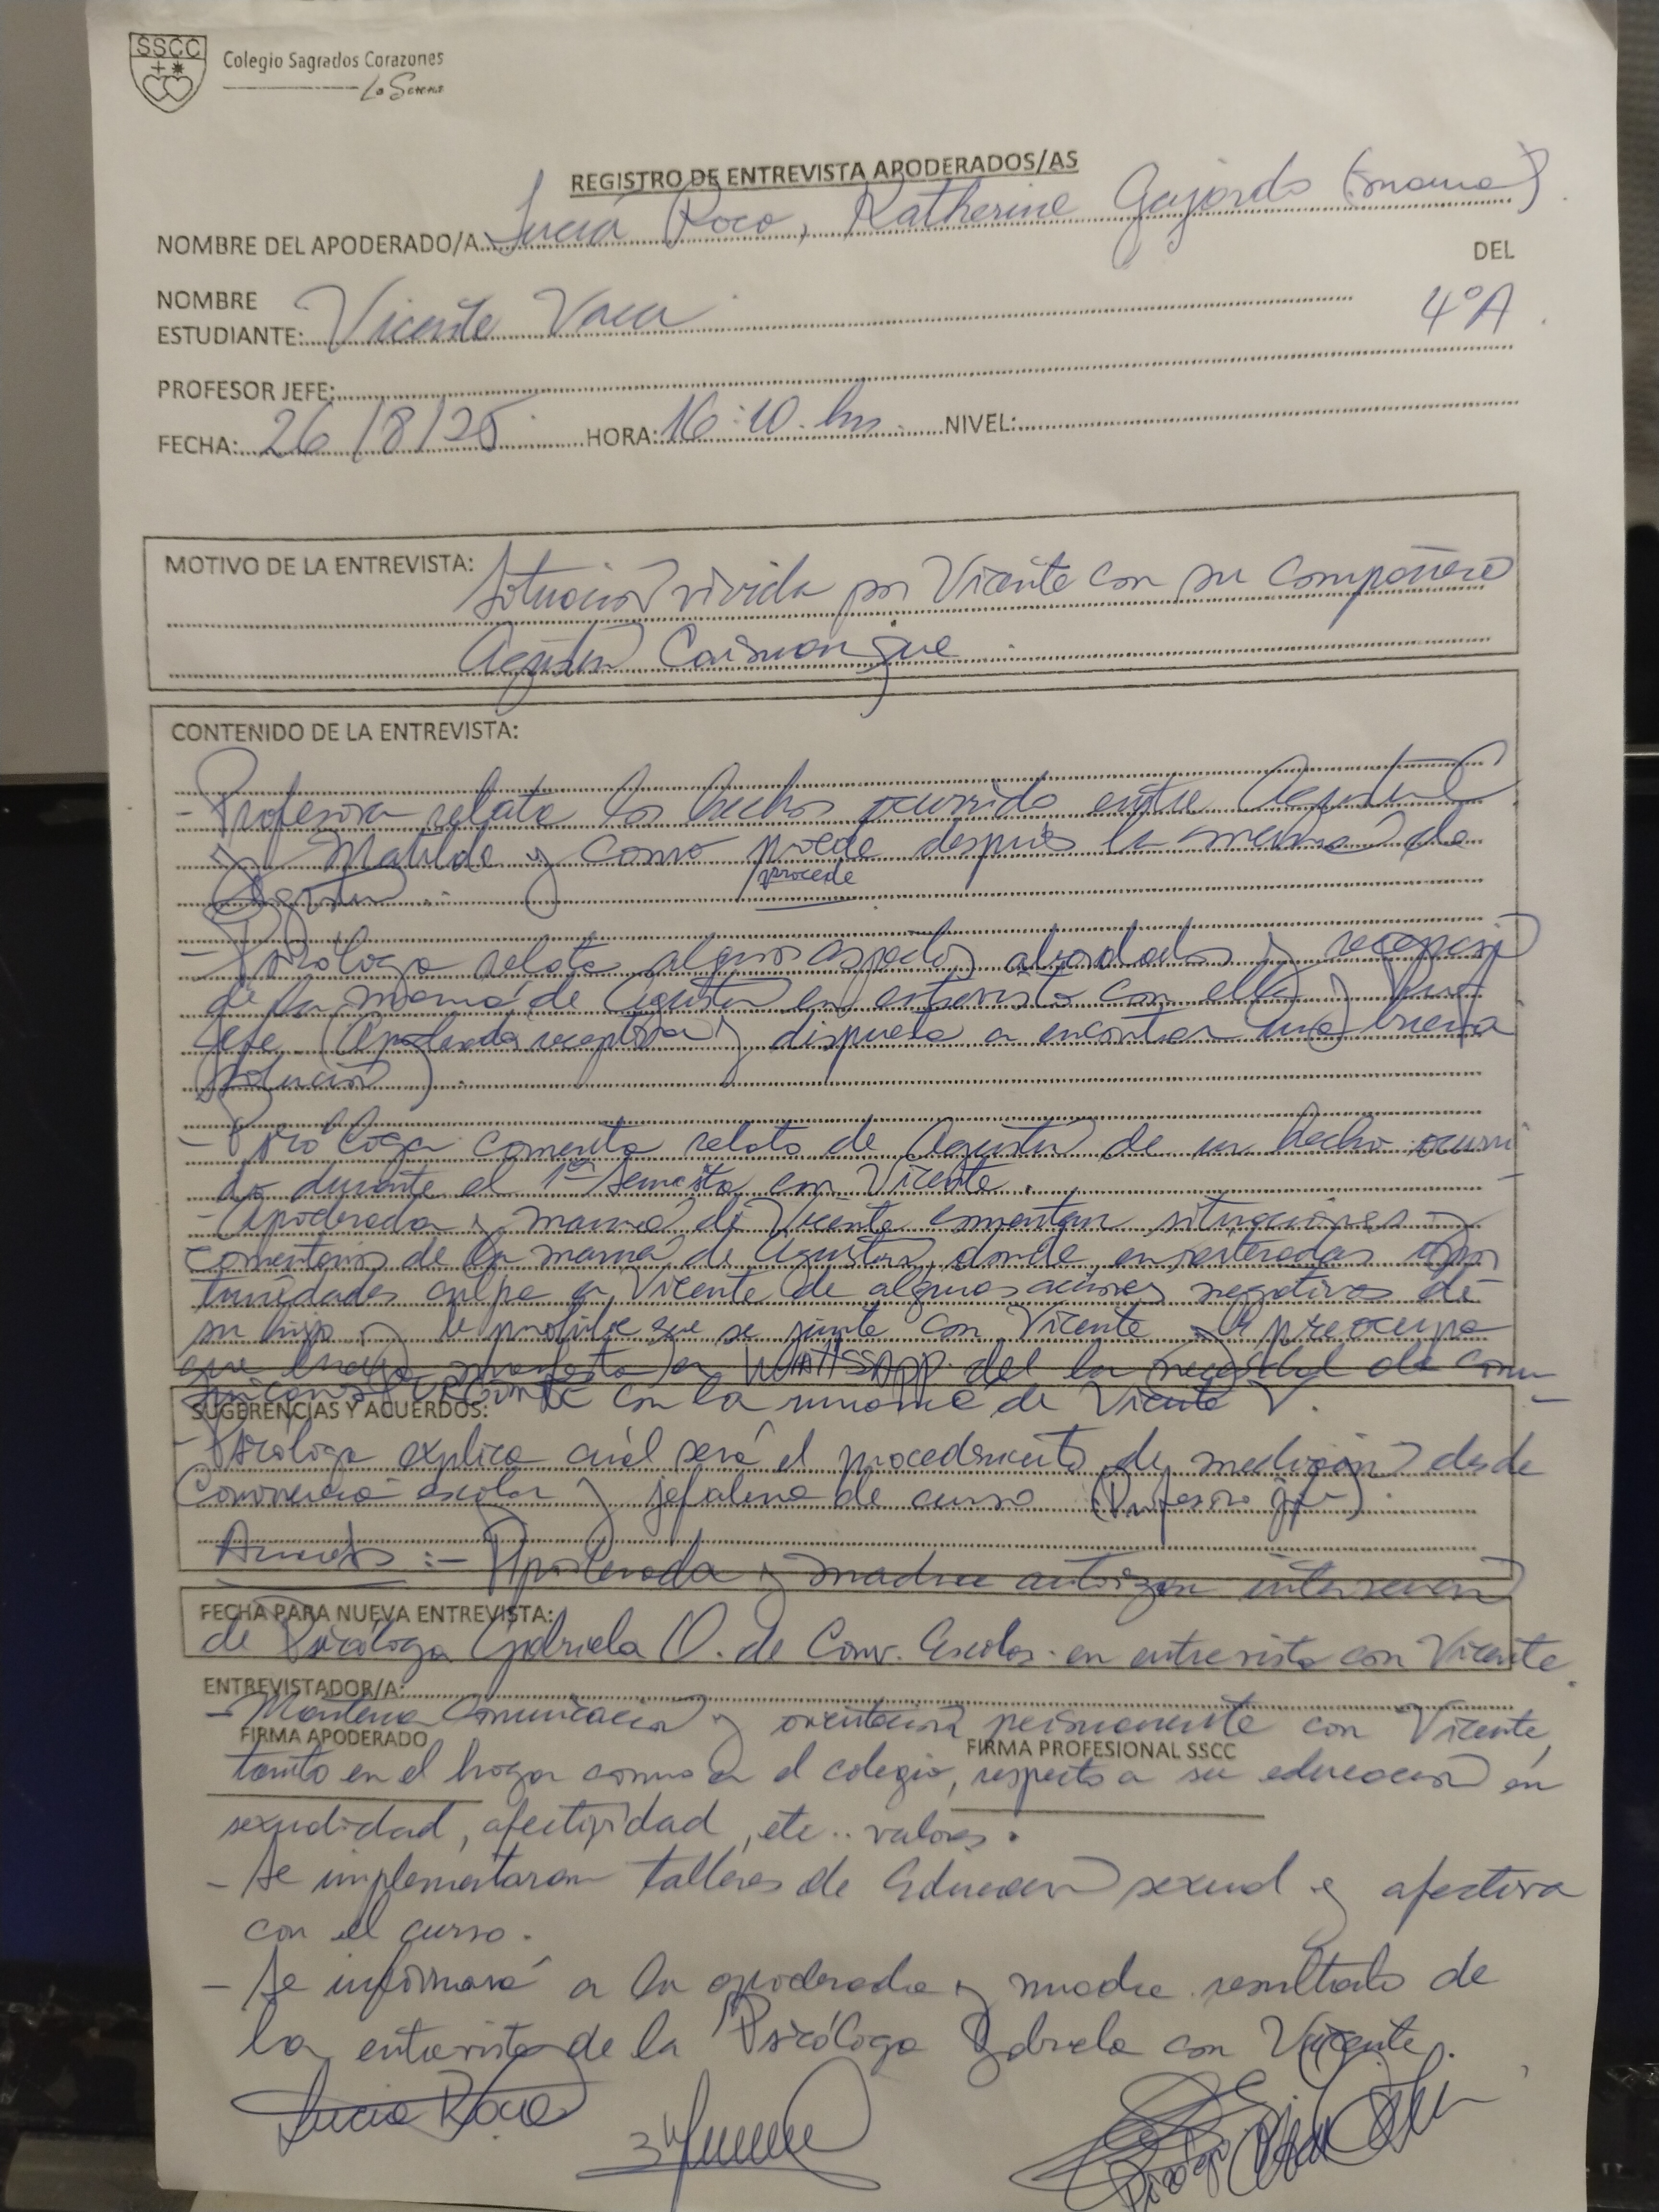 SSCC
Colegio Sagrados Corazones
La Serena
REGISTRO DE ENTREVISTA APODERADOS/AS
NOMBRE DEL APODERADO/A Lucía Roco, Katherine Gajardo (mamá)
DEL
NOMBRE
ESTUDIANTE: Vicente Vaca 4°A
PROFESOR JEFE:
FECHA: 26/8/25 HORA: 16:10 hrs NIVEL:
MOTIVO DE LA ENTREVISTA: Situación vivida por Vicente con su compañero
Agustín
CONTENIDO DE LA ENTREVISTA:
- Profesora relata los hechos ocurrido entre Agustín
y Matilde y como procede después la mamá de
procede
Agustín.
- Psicóloga relata algunos aspectos abordados y recepción
de la mamá de Agustín en entrevista con ella y Prof.
Jefe (Apoderada receptiva y dispuesta a encontrar una buena
solución).
- Psicóloga comenta relato de Agustín de un hecho ocurri
do durante el 1er Semestre con Vicente.
- Apoderada y mamá de Vicente comentan situaciones y
comentarios de la mamá de Agustín, donde en reiteradas opor
tunidades culpa a Vicente de algunas acciones negativas de
su hijo y le prohibe que se junte con Vicente y le preocupa
que haya puesto en WHATSAPP del la necesidad de comu
nicarse URGENTE con la mamá de Vicente V.
SUGERENCIAS Y ACUERDOS:
- Psicóloga explica cuál será el procedimiento de mediación desde
Convivencia escolar y jefatura de curso (Profesora jefe).
Acuerdos :- Apoderada y madre autorizan intervención
FECHA PARA NUEVA ENTREVISTA:
de Psicóloga Gabriela O. de Conv. Escolar en entrevista con Vicente.
ENTREVISTADOR/A:
- Mantener comunicación y orientación permanente con Vicente,
FIRMA APODERADO
FIRMA PROFESIONAL SSCC
tanto en el hogar como en el colegio, respecto a su educación en
sexualidad, afectividad, etc.. valores.
- Se implementarán talleres de Educación sexual y afectiva
con el curso.
- Se informará a la apoderada y madre resultado de
la entrevista de la Psicóloga Gabriela con Vicente.
Lucía Roco